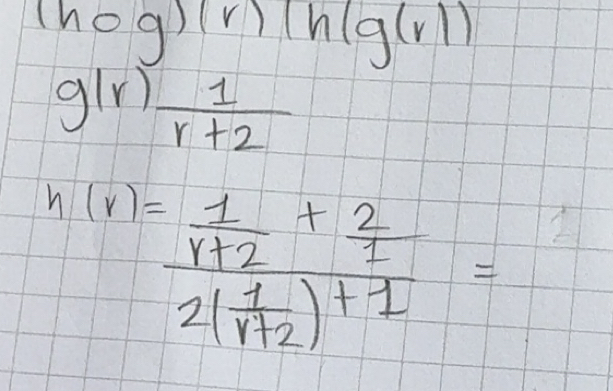 (h o g)(r) (h(g(r))
g(r) 1/(r+2)
h(r) = (1/(r+2) + 2/1)/(2(1/(r+2)) + 1) =